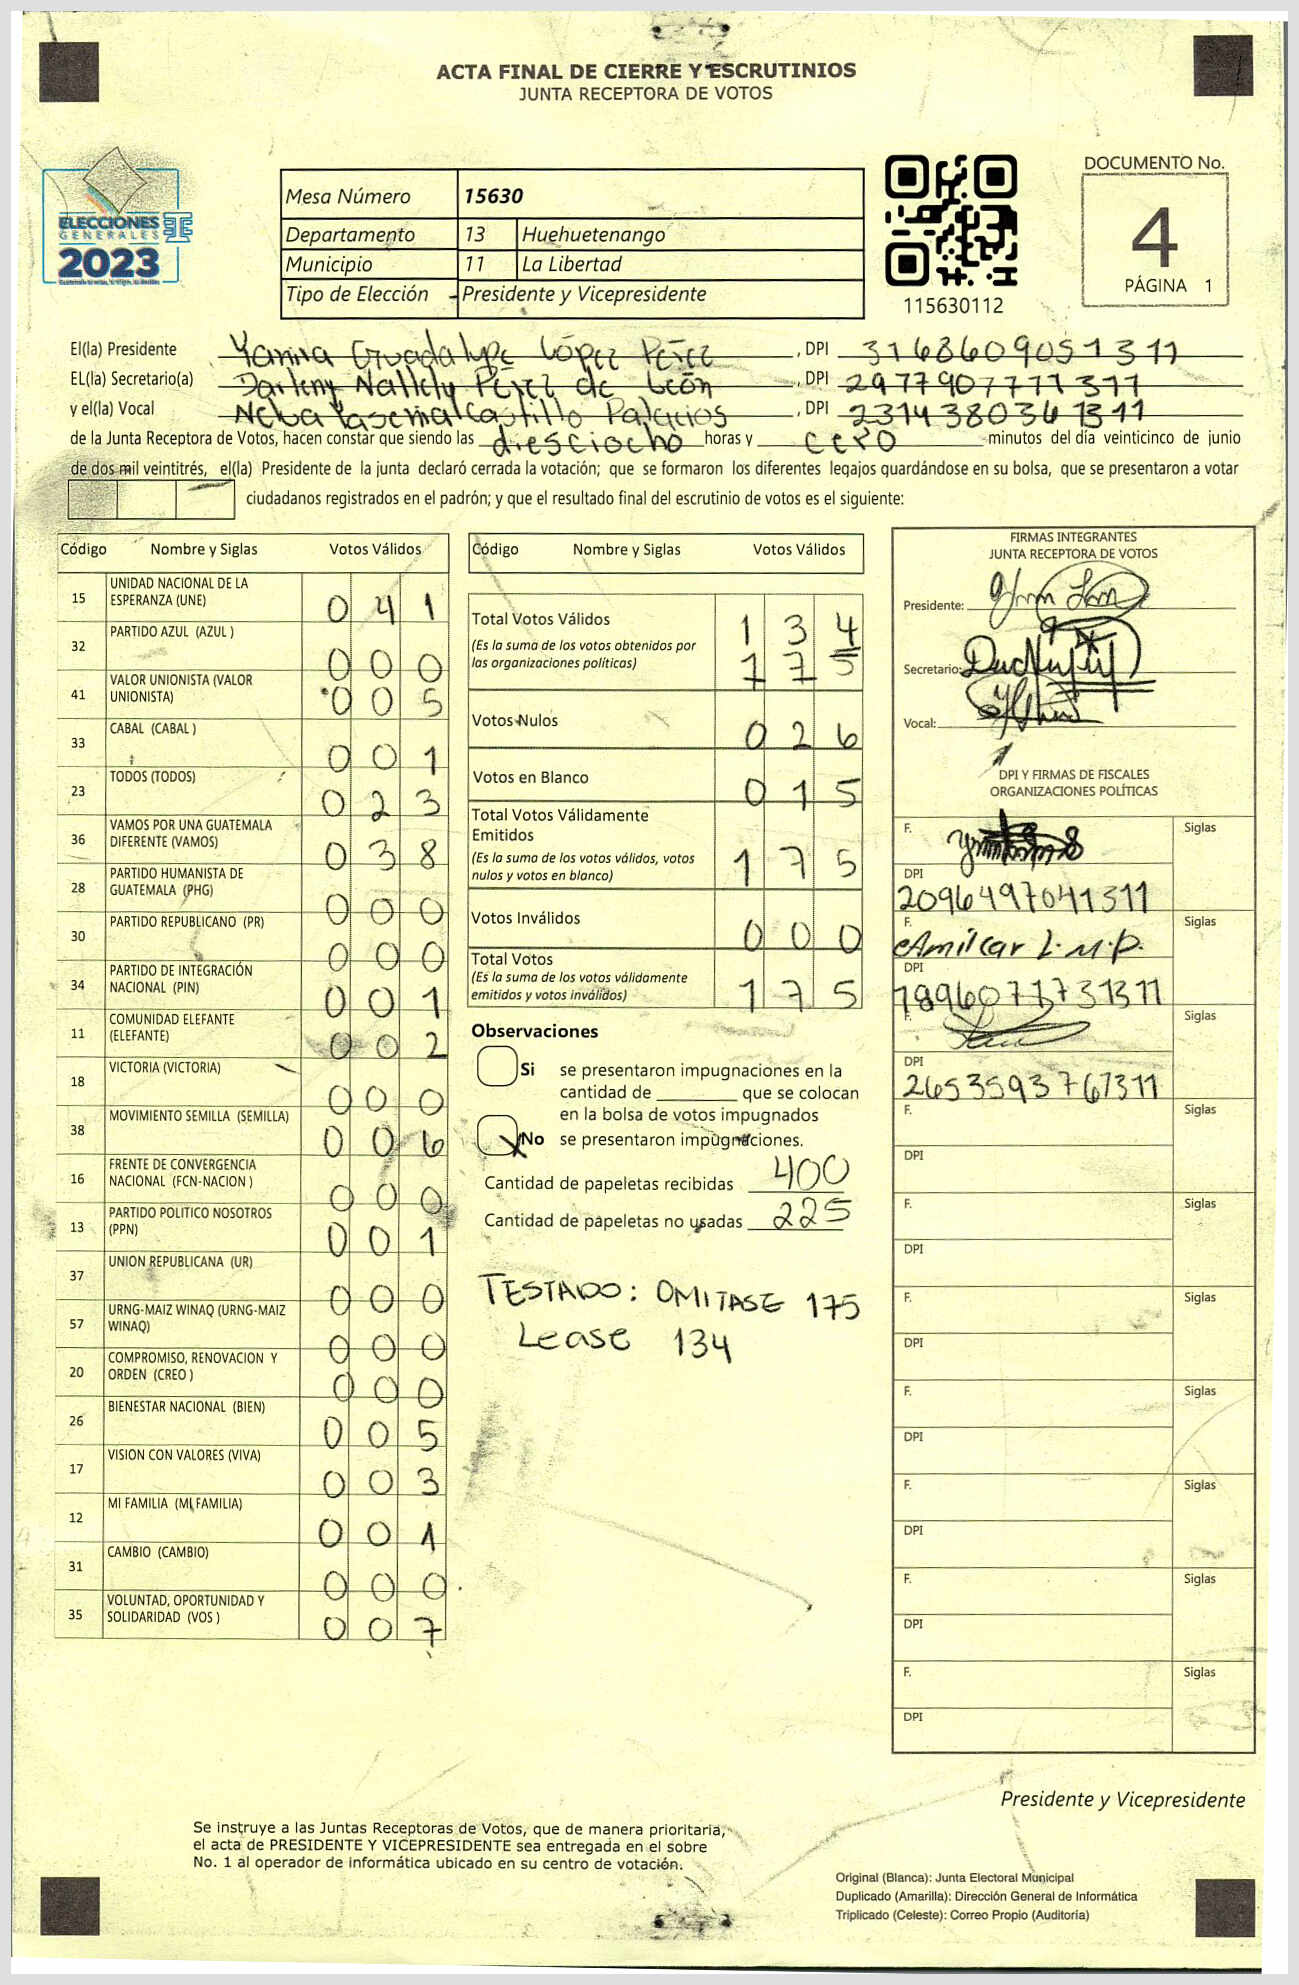 ACTA FINAL DE CIERRE Y ESCRUTINIOS
JUNTA RECEPTORA DE VOTOS
ELECCIONES
GENERALES
2023
Mesa Número 15630
Departamento 13 Huehuetenango
Municipio 11 La Libertad
Tipo de Elección Presidente y Vicepresidente
115630112
DOCUMENTO No.
4
PÁGINA 1
El(la) Presidente Yanira Guadalupe López Pérez , DPI 3168609051311
EL(la) Secretario(a) Darleny Nallely Pérez de León , DPI 2977907771311
y el(la) Vocal Castillo Palacios , DPI 2314380361311
de la Junta Receptora de Votos, hacen constar que siendo las diesciocho horas y cero minutos del día veinticinco de junio
de dos mil veintitrés, el(la) Presidente de la junta declaró cerrada la votación; que se formaron los diferentes legajos guardándose en su bolsa, que se presentaron a votar
ciudadanos registrados en el padrón; y que el resultado final del escrutinio de votos es el siguiente:
Código Nombre y Siglas Votos Válidos
15 UNIDAD NACIONAL DE LA ESPERANZA (UNE) 0 4 1
32 PARTIDO AZUL (AZUL ) 0 0 0
41 VALOR UNIONISTA (VALOR UNIONISTA) 0 0 5
33 CABAL (CABAL ) 0 0 1
23 TODOS (TODOS) 0 2 3
36 VAMOS POR UNA GUATEMALA DIFERENTE (VAMOS) 0 3 8
28 PARTIDO HUMANISTA DE GUATEMALA (PHG) 0 0 0
30 PARTIDO REPUBLICANO (PR) 0 0 0
34 PARTIDO DE INTEGRACIÓN NACIONAL (PIN) 0 0 1
11 COMUNIDAD ELEFANTE (ELEFANTE) 0 0 2
18 VICTORIA (VICTORIA) 0 0 0
38 MOVIMIENTO SEMILLA (SEMILLA) 0 0 6
16 FRENTE DE CONVERGENCIA NACIONAL (FCN-NACION ) 0 0 0
13 PARTIDO POLITICO NOSOTROS (PPN) 0 0 1
37 UNION REPUBLICANA (UR) 0 0 0
57 URNG-MAIZ WINAQ (URNG-MAIZ WINAQ) 0 0 0
20 COMPROMISO, RENOVACION Y ORDEN (CREO ) 0 0 0
26 BIENESTAR NACIONAL (BIEN) 0 0 5
17 VISION CON VALORES (VIVA) 0 0 3
12 MI FAMILIA (MI FAMILIA) 0 0 1
31 CAMBIO (CAMBIO) 0 0 0
35 VOLUNTAD, OPORTUNIDAD Y SOLIDARIDAD (VOS ) 0 0 7
Código Nombre y Siglas Votos Válidos
Total Votos Válidos 1 3 4
(Es la suma de los votos obtenidos por
las organizaciones políticas) 1 7 5
Votos Nulos 0 2 6
Votos en Blanco 0 1 5
Total Votos Válidamente
Emitidos
(Es la suma de los votos válidos, votos
nulos y votos en blanco) 1 7 5
Votos Inválidos 0 0 0
Total Votos
(Es la suma de los votos válidamente
emitidos y votos inválidos) 1 7 5
Observaciones
Si se presentaron impugnaciones en la
cantidad de ________ que se colocan
en la bolsa de votos impugnados
X No se presentaron impugnaciones.
Cantidad de papeletas recibidas 400
Cantidad de papeletas no usadas 225
TESTADO: OMITASE 175
Lease 134
FIRMAS INTEGRANTES
JUNTA RECEPTORA DE VOTOS
Presidente:
Secretario:
Vocal:
DPI Y FIRMAS DE FISCALES
ORGANIZACIONES POLÍTICAS
F. Siglas
DPI
2096497041311
F. Amilcar L.M.P. Siglas
DPI
1896071731311
F. Siglas
DPI
2653593761311
F. Siglas
DPI
F. Siglas
DPI
F. Siglas
DPI
F. Siglas
DPI
F. Siglas
DPI
F. Siglas
DPI
F. Siglas
DPI
Presidente y Vicepresidente
Se instruye a las Juntas Receptoras de Votos, que de manera prioritaria,
el acta de PRESIDENTE Y VICEPRESIDENTE sea entregada en el sobre
No. 1 al operador de informática ubicado en su centro de votación.
Original (Blanca): Junta Electoral Municipal
Duplicado (Amarilla): Dirección General de Informática
Triplicado (Celeste): Correo Propio (Auditoría)